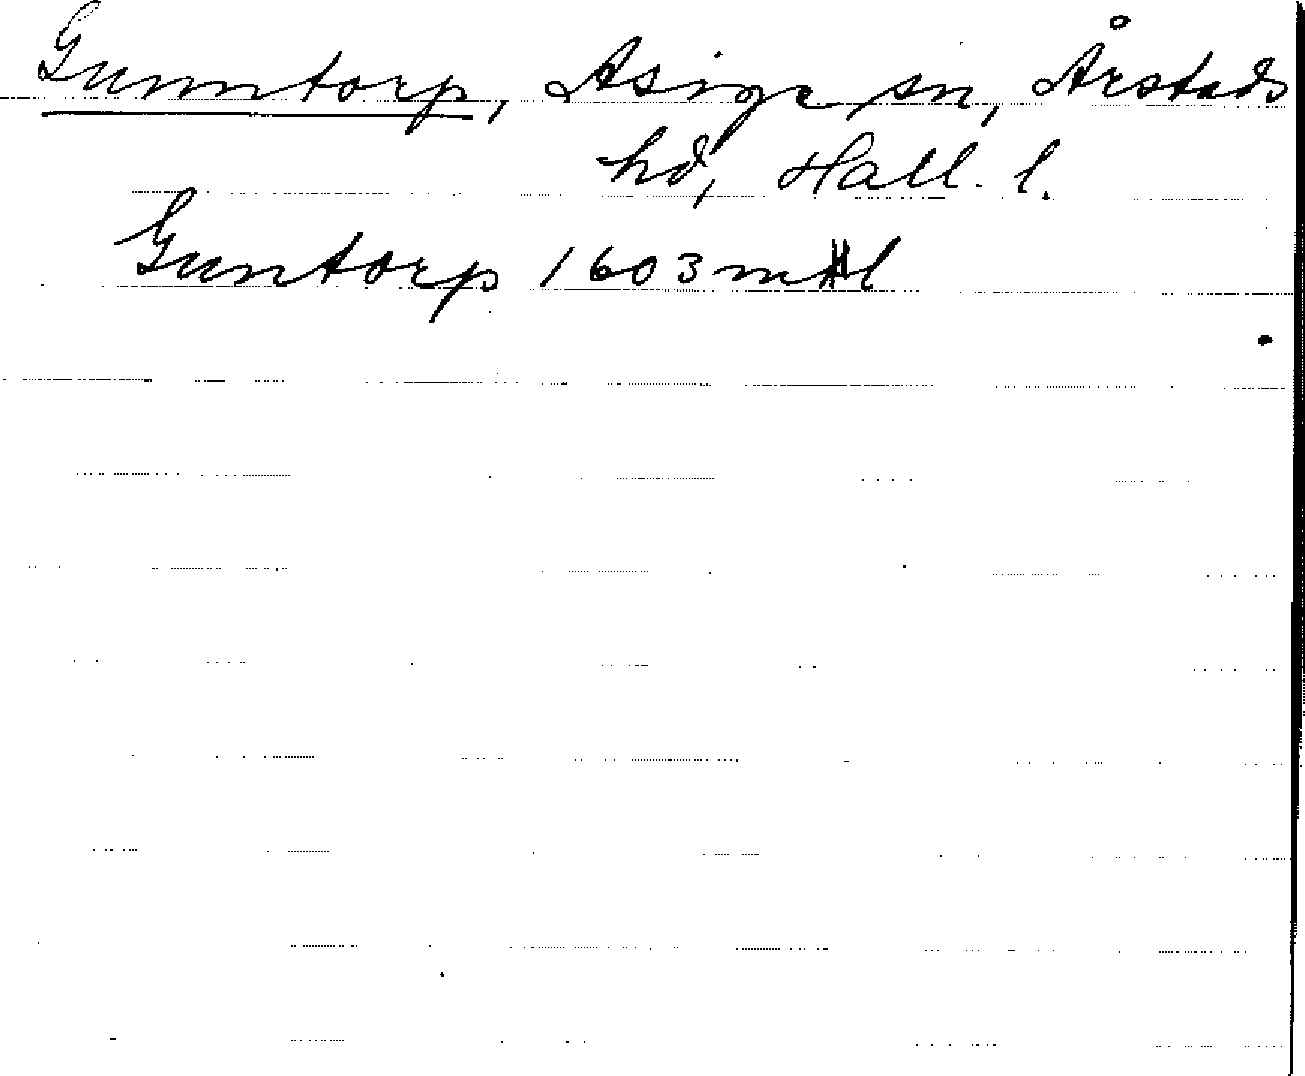 Gunntorp, Asige sn, Årstads
hd, Hall. l.
Guntorp 1603